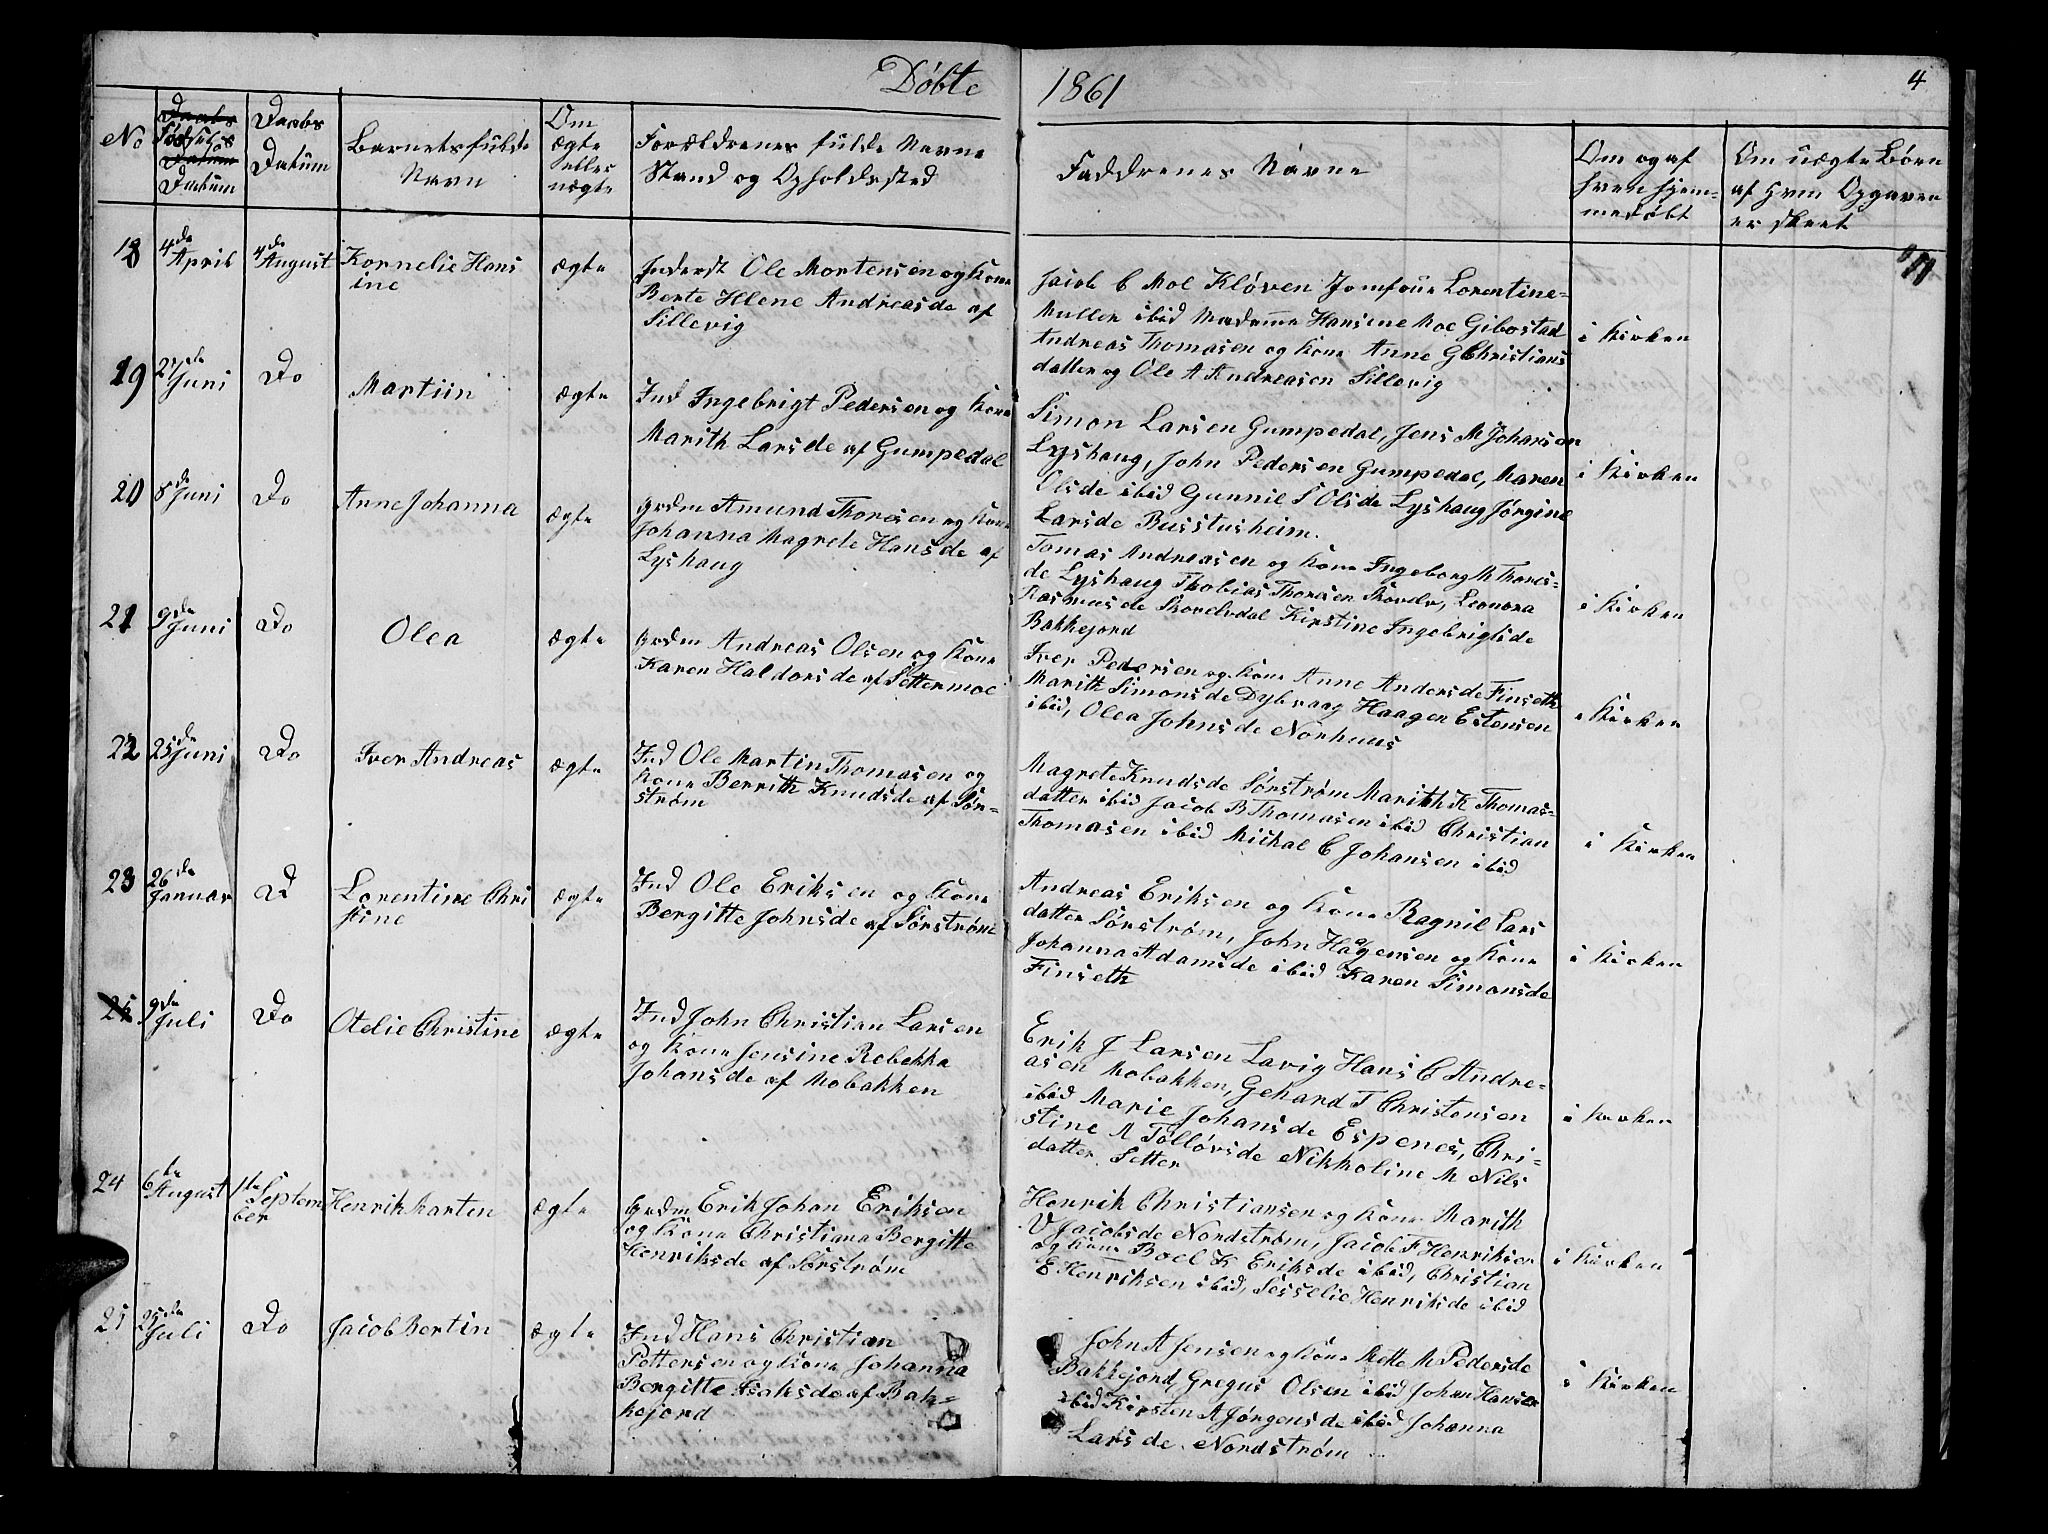 Døbte
1861
4
No
Daabs
Fødselss
Datum
Datum
Daabs
Datum
Barnets fulde
Navn
Om
ægte
eller
uægte
Forældrenes fulde Navne
Stand og Opholdssted
Faddrenes Navne
Om og af
hvem hjem-
medøbt
Om uægte Børn
af hvem Opgaven
er skeet
18
4de
April
4de
August
Kornelie Hans
ine
ægte
Inderst Ole Mortensen og Kone
Berte Hlene Andreasde af
Sillevig
Jacob C Moe Kløven Jomfrue Lorentine
Muller ibid Madame Hansine Moe Gibostad
Andreas Thomasen og Kone Anne G Christians
datter og Ole A Andreasen Sillevig
i Kirken
19
27de
Juni
Do
Martiin
ægte
Ind Ingebrigt Pedersen og Kone
Marith Larsde af Gumpedal
Simon Larsen Gumpedal, Jens M Johansen
Lyshaug, John Pedersen Gumpedal, Maren
Olsde ibid Gunnil S Olsde Lyshaug Jørgine
Larsde Busstusheim.
i Kirken
20
8de
Juni
Do
Anne Johanna
ægte
Grdm Amund Thoresen og Kone
Johanna Magrete Hansde af
Lyshaug
Tomas Andreasen og Kone Ingeborg M Thores-
de Lyshaug Thobias Thoresen Skovelv, Leonora
Rasmusde Skovelvdal Kirstine Ingebrigtsde
Bakkejord
i Kirken
21
9de
Juni
Do
Olea
ægte
Grdm Andreas Olsen og Kone
Karen Haldorsde af Settermoe
Iver Pedersen og Kone Anne Andersde Finseth
Marith Simonsde Dybvaag Haagen Estensen
ibid, Olea Johnsde Norhuus
i Kirken
22
25de
Juni
Do
Iver Andreas
ægte
Ind Ole Martin Thomasen og
Kone Berrith Knudsde af Sør-
strøm
Magrete Knudsde Sørstrøm Marith K Thomas-
datter ibid Jacob B Thomasen ibid Christian
Thomasen ibid Michal C Johansen ibid
i Kirken
23
26de
Januar
D
Lorentine Chri
stine
ægte
Ind Ole Eriksen og Kone
Bergitte Johnsde af Sørstrøm
Andreas Eriksen og Kone Ragnil Lars
datter Sørstrøm, John Haagensen og Kone
Johanna Adamsde ibid Karen Simonsde
Finseth
i Kirken
9de
Juli
Do
Otelie Christine
ægte
Ind John Christian Larsen
og Kone Jensine Rebekka
Johansde af Mobakken
Erik J Larsen Lavig Hans C Andre-
asen Mobakken, Gehard T Christensen
ibid Marie Johansde Espenes, Chri-
stine A Tølløvsde Nikkoline M Nils
datter Setter
i Kirken
24
6te
August
1te
Septem
ber
Henrik Marten
ægte
Grdm Erik Johan Eriksen
og Kone Christiana Bergitte
Henriksde af Sørstrøm
Henrik Christiansen og Kone Marith
V Jacobsde Nordstrøm, Jacob F Henriksen
og Kone Boel K Eriksde ibid, Christian
E Henriksen ibid, Sesselie Henriksde ibid
i Kirken
25
25de
Juli
Do
Jacob Bertin
ægte
Ind Hans Christian
Pettersen og Kone Johanna
Bergitte Isaksde af Bak-
kejord
John A Jensen og Kone Mette M Pedersde
Bakkejord Gregus Olsen ibid Johan Hansen
ibid Kirsten A Jørgensde ibid Johanna
Larsde Nordstrøm
i Kirken